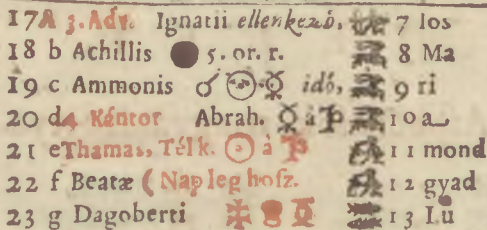 17 A 3. Adv. Ignatii ellenkezö, 7 los
18 b Achillis ● 5. or. r. 8 Ma
19 c Ammonis ☌ ☉ ☿ idö, 9 ri
20 d4 Kántor Abrah. ☿ à 10 a
21 e Thamas, Télk. ☉ à 11 mond
22 f Beatæ ( Nap leg hoſz. 12 gyad
23 g Dagoberti 13 Lü